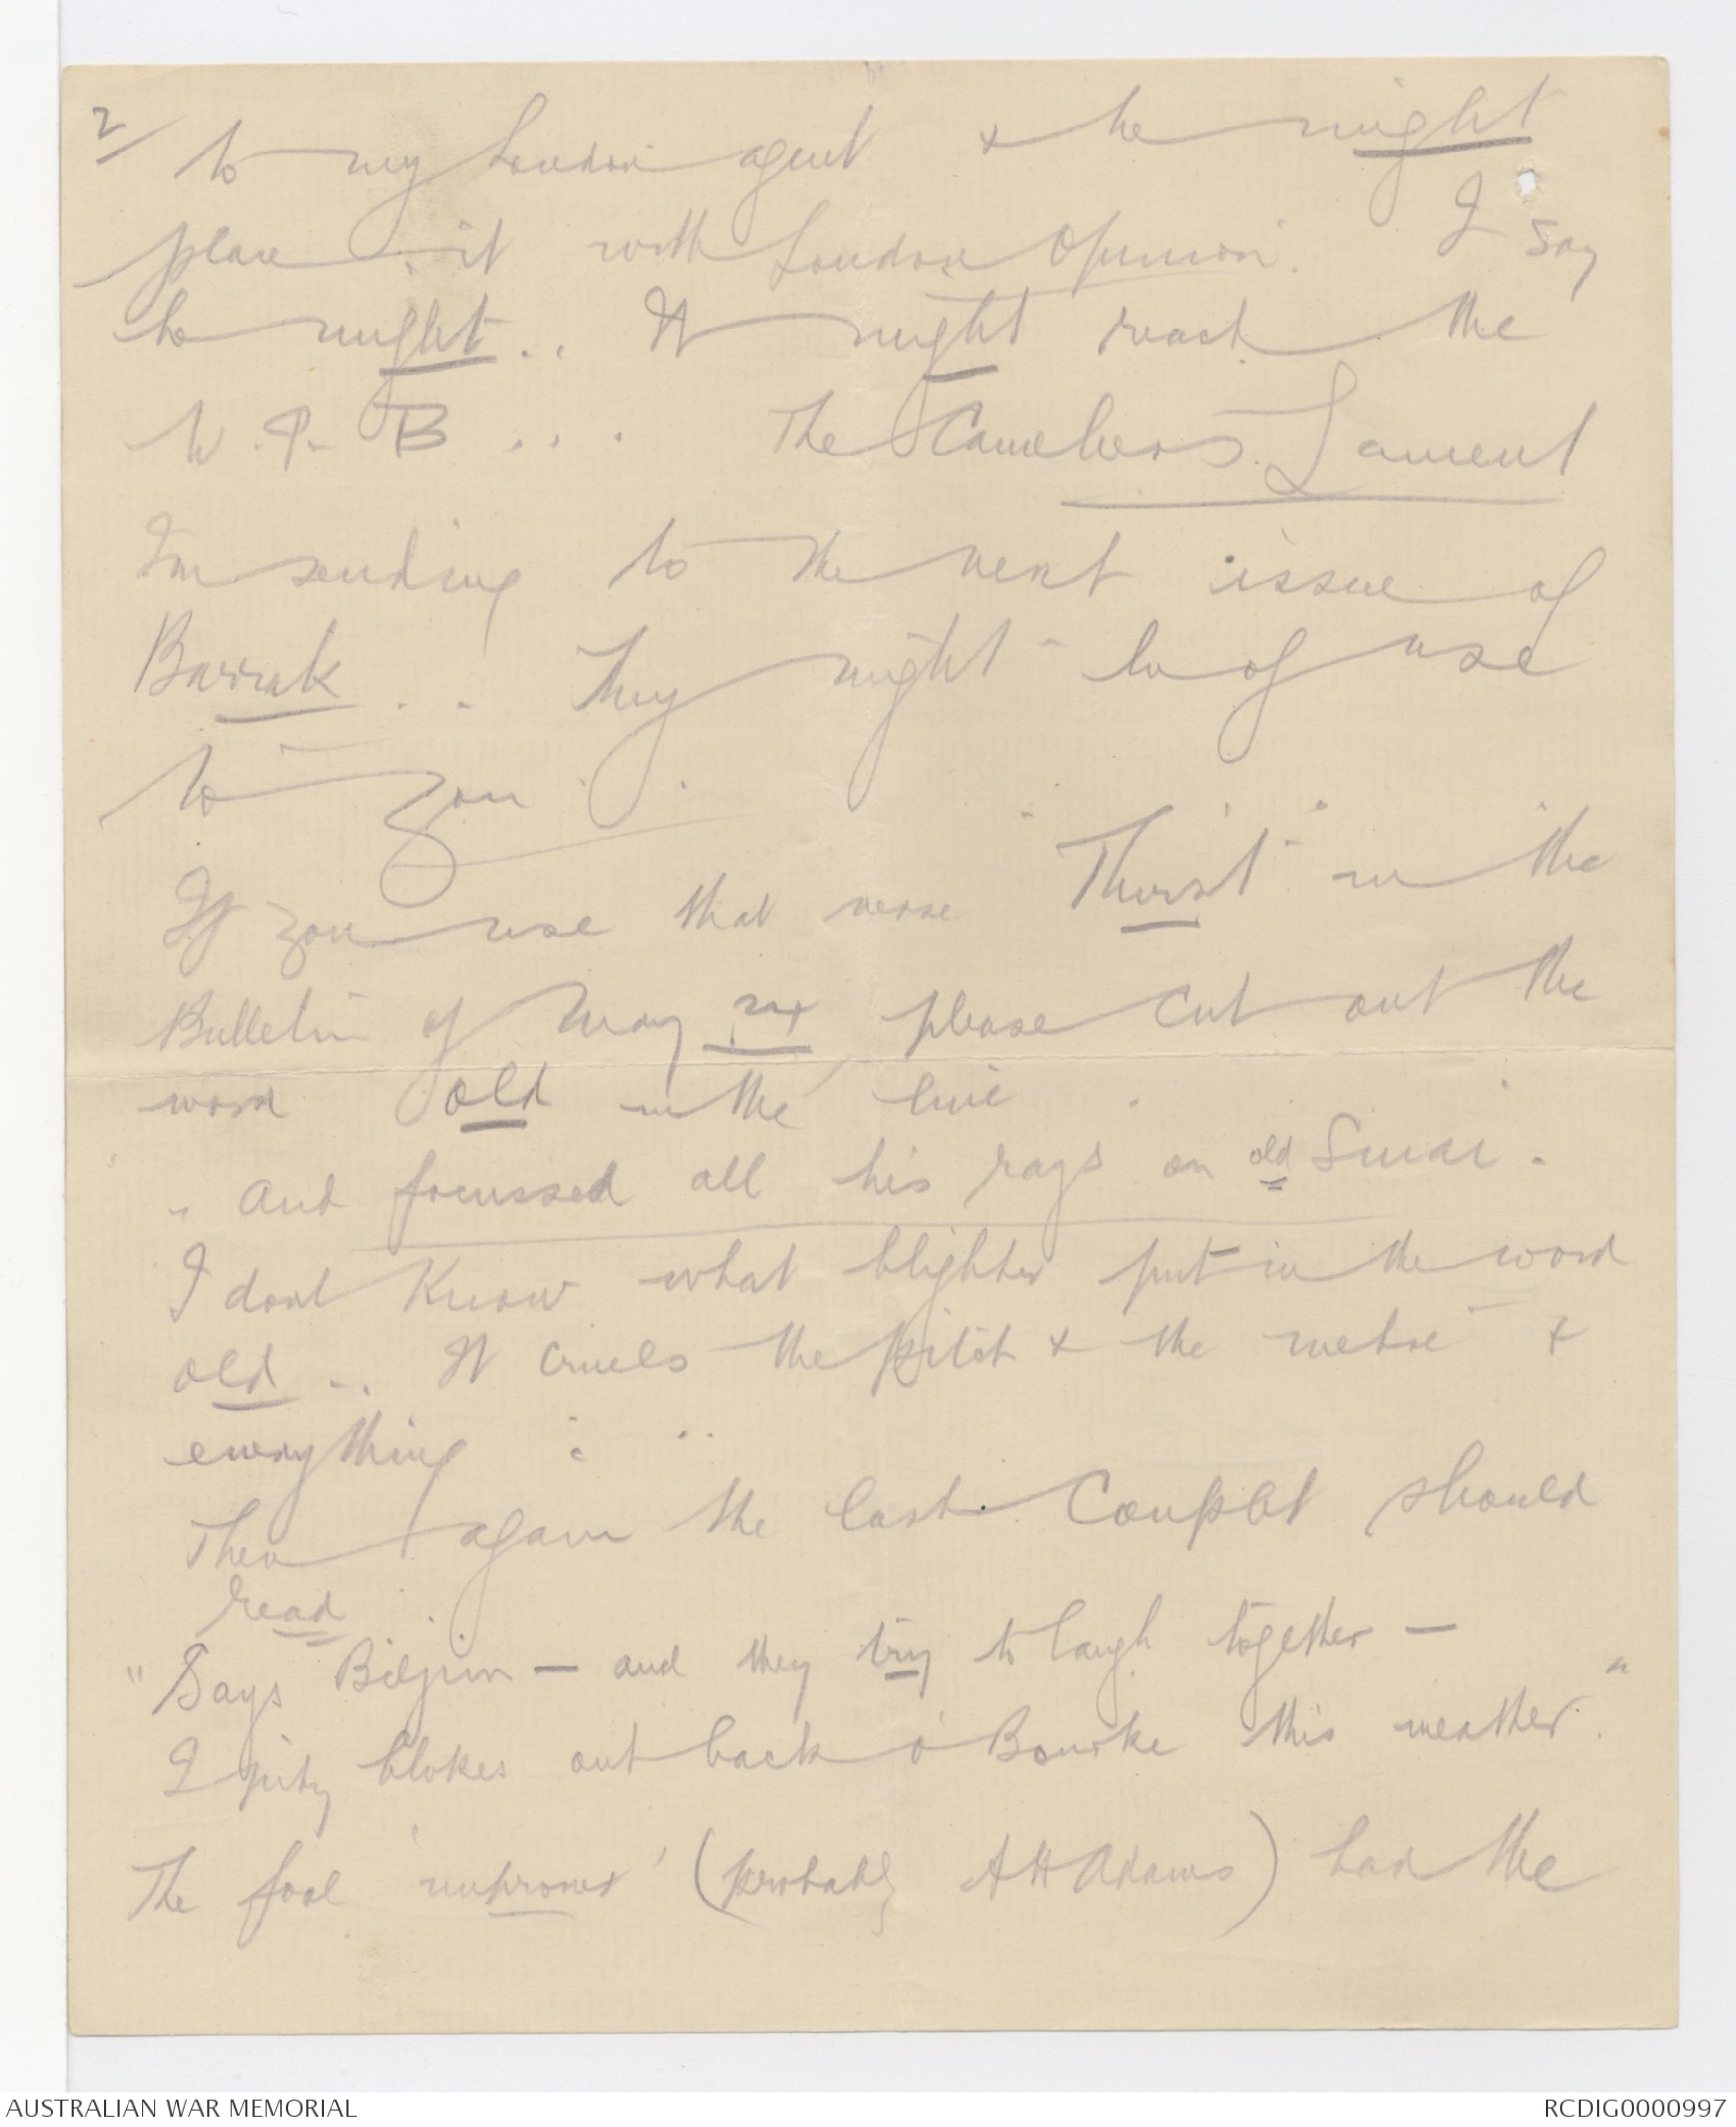 2/ to my London agent & he might
place it with London Opinion. I say
he might .. It might reach the
W.P.B ... The Cameliers Lament
I'm sending to the next issue of
Barrak .. They might be of use
to you .
If you use that verse "Thirst" in the
Bulletin of May please cut out the
word old in the line .
" and focussed all his rays on old Sinai .
I dont know what blighter put in the word
old ... It cruels the pitch & the metre &
everything : ..
Then again the last Couplet should
read .
"Says Biljim — and they try to laugh together —
I pity blokes out back o' Bourke this weather."
The fool 'improver' (probably A H Adams) had the
AUSTRALIAN WAR MEMORIAL
RCDIG0000997